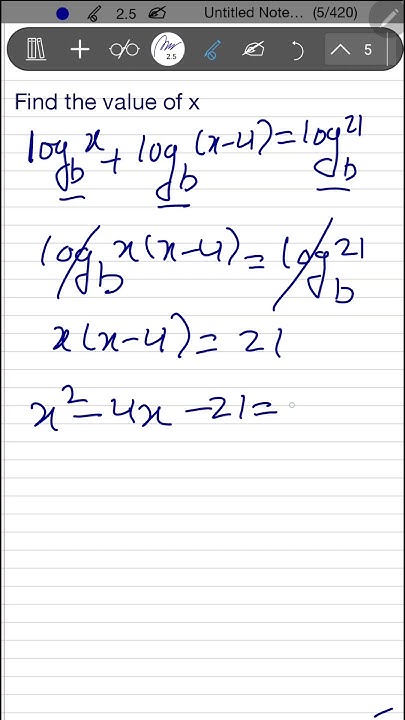 2.5 Untitled Note... (5/420)
2.5 5
Find the value of x
log_b x + log_b (x-4) = log_b 21
log_b x(x-4) = log_b 21
x(x-4) = 21
x² - 4x - 21 =